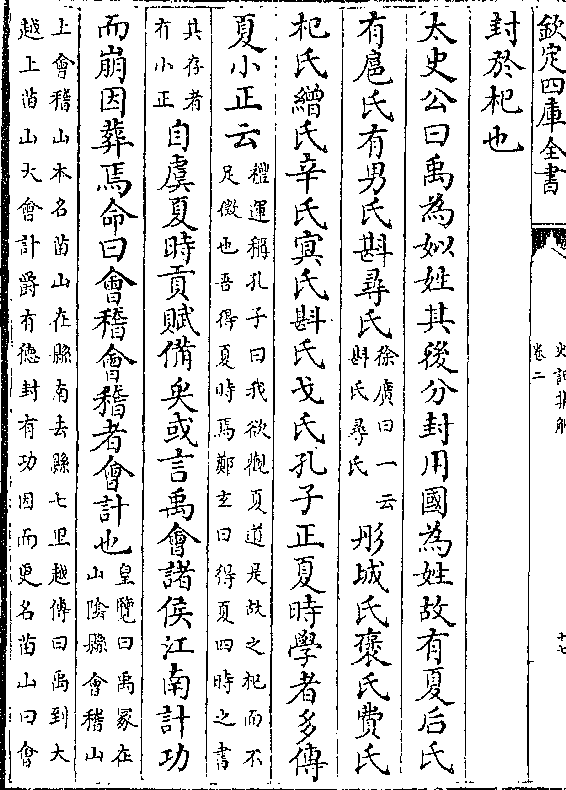 欽定四庫全書
史記集解
卷二
十七
封於杞也
太史公曰禹為姒姓其後分封用國為姓故有夏后氏
有扈氏有男氏斟尋氏徐廣曰一云斟氏尋氏彤城氏褒氏費氏
杞氏繒氏辛氏寘氏斟氏戈氏孔子正夏時學者多傳
夏小正云禮運稱孔子曰我欲觀夏道是故之杞而不足徴也吾得夏時焉鄭玄曰得夏四時之書
其存者有小正自虞夏時貢賦備矣或言禹會諸侯江南計功
而崩因葬焉命曰會稽會稽者會計也皇覽曰禹冢在山隂縣會稽山
上會稽山本名苗山在縣南去縣七里越傳曰禹到大
越上苗山大會計爵有德封有功因而更名苗山曰會